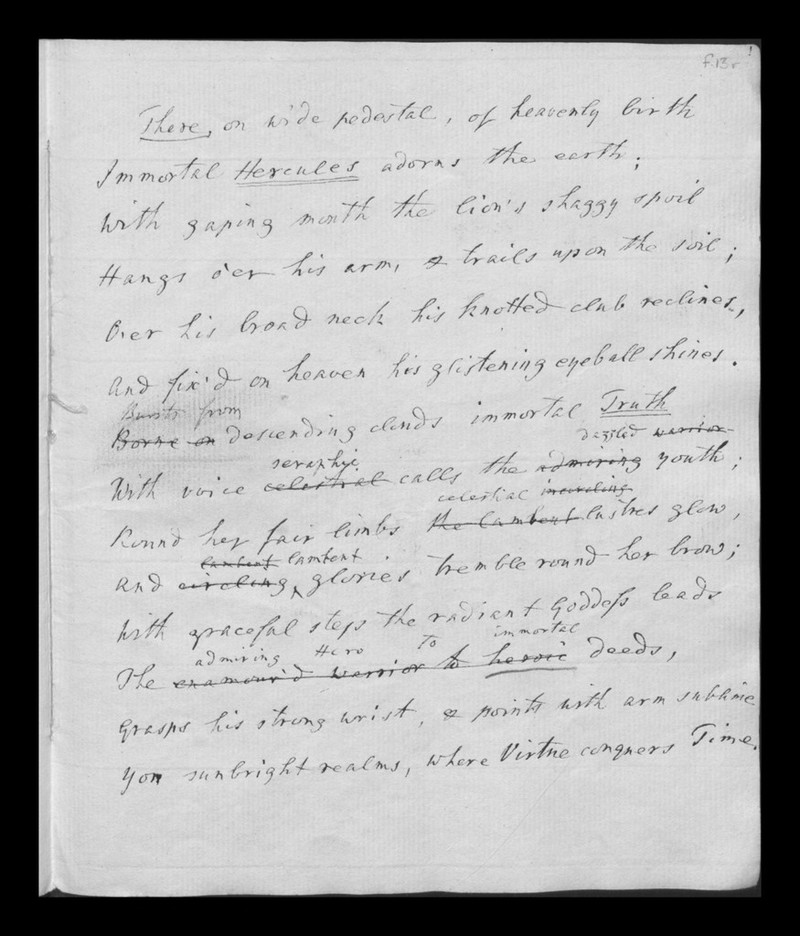 f.13r
There, on wide pedestal, of heavenly birth
Immortal Hercules adorns the earth;
With gaping mouth the lion's shaggy spoil
Hangs o'er his arm, & trails upon the soil;
Oer his broad neck his knotted club reclines,
And fix'd on heaven his glistening eyeball shines.
Bursts from
Borne on descending clouds immortal Truth
seraphic dazzled warrior
With voice celestial calls the admiring youth;
celestial incircling
Round her fair limbs the lambent lustres glow,
lambent lambent
And circling glories tremble round her brow;
With graceful steps the radiant Goddess leads
admiring Hero To immortal
The enamour'd warrior to heroic deeds,
Grasps his strong wrist, & points with arm sublime
Yon sunbright realms, where Virtue conquers Time.